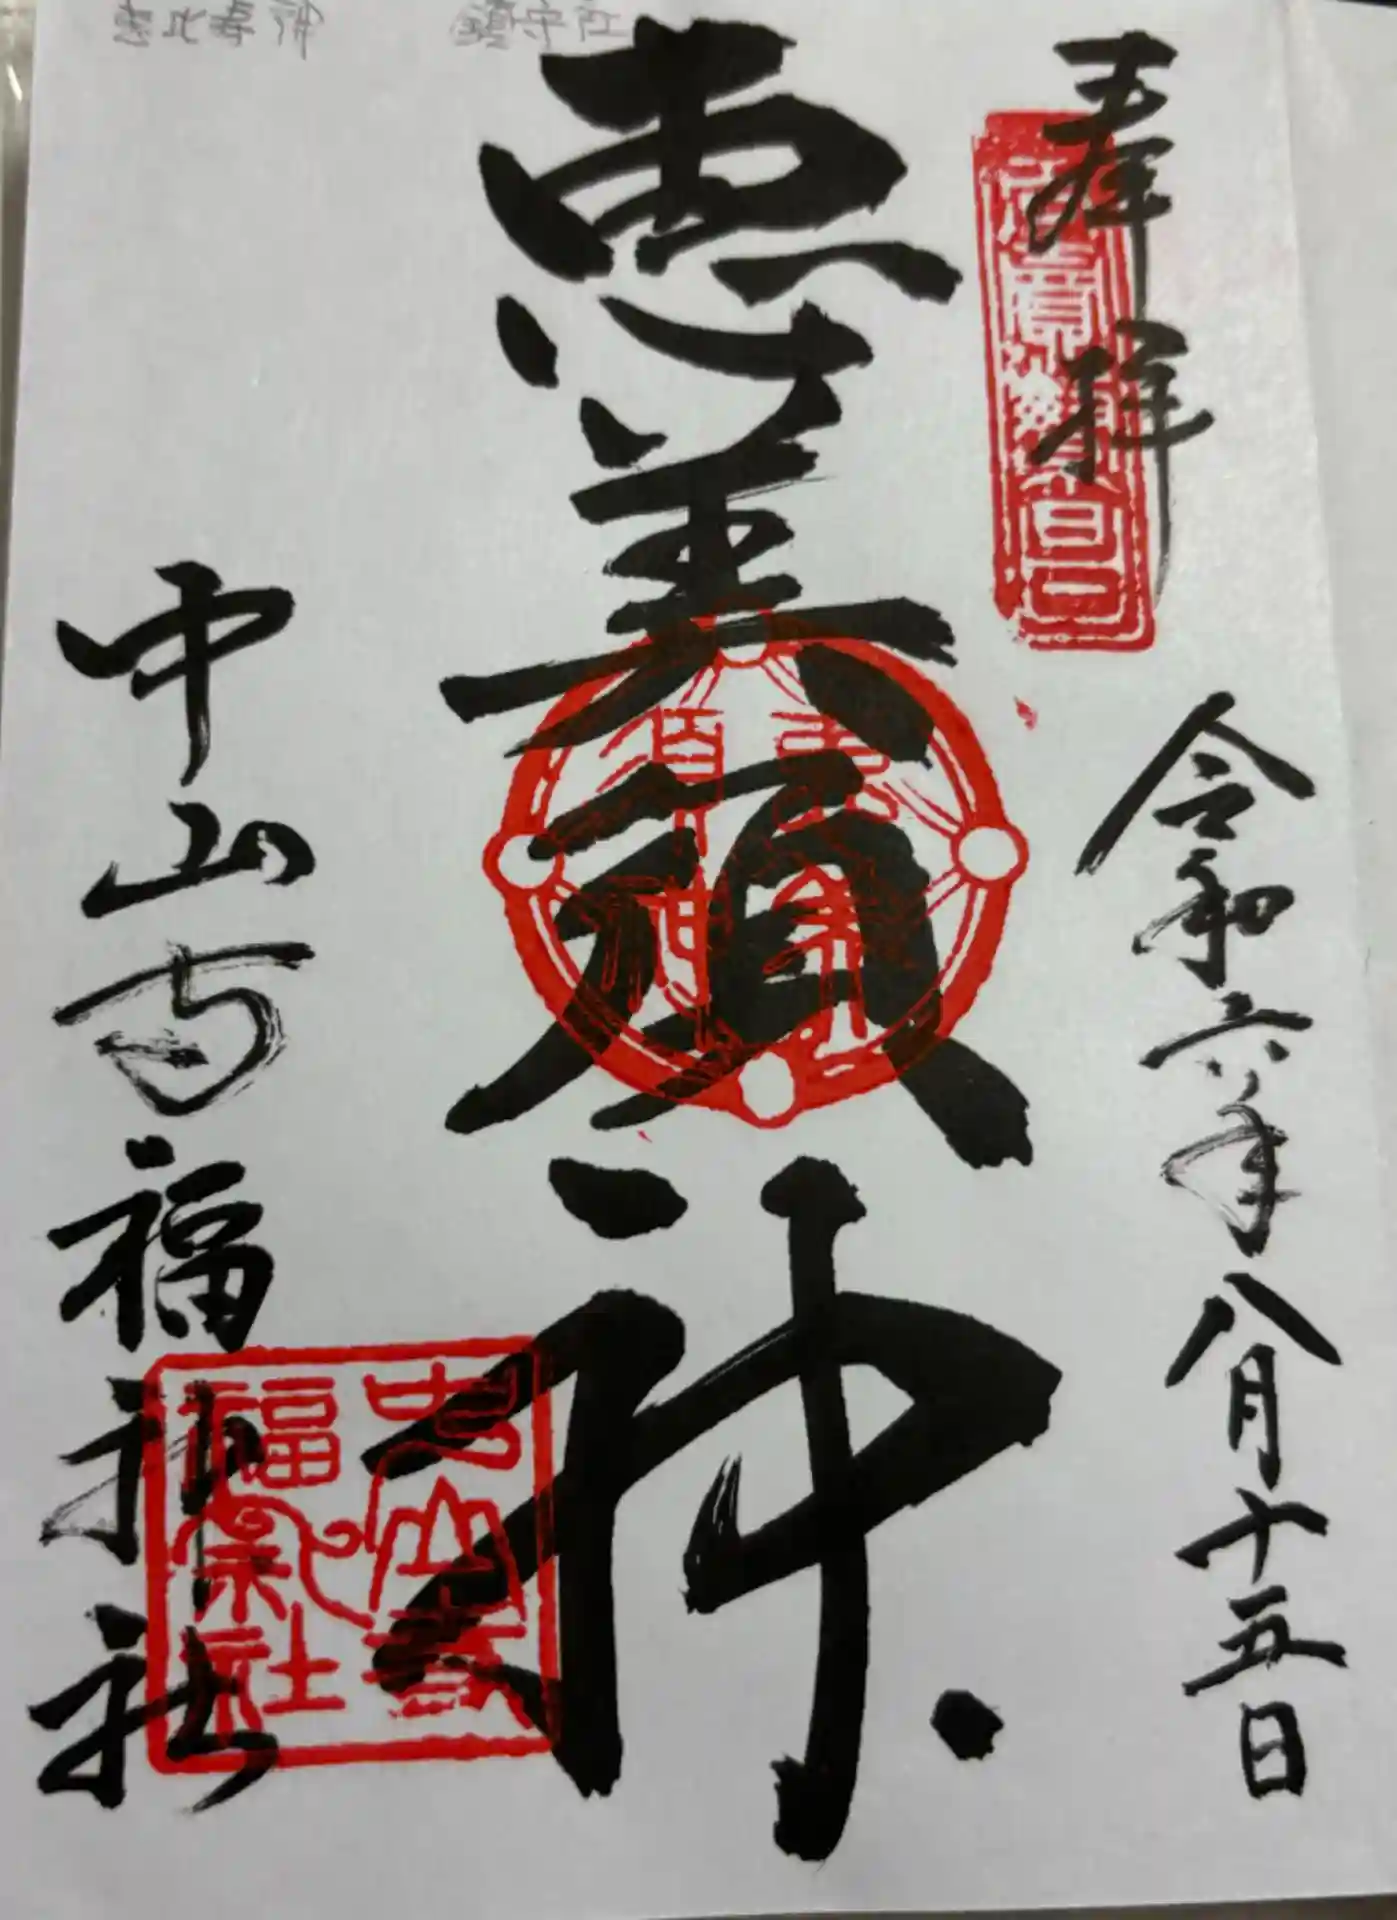 恵比寿神 鎮守社
奉拝
令和六年八月十五日
恵美須神
恵美
須神
中山寺福神社
中山寺